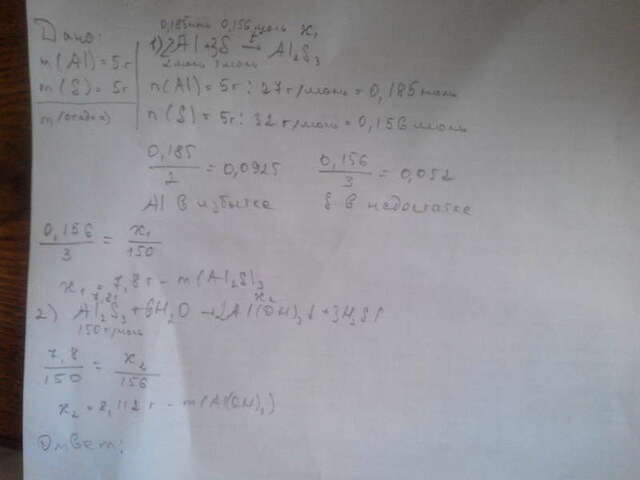 Дано:
m(Al)=5г
m(S)=5г
m(осадка)
0,185моль 0,156моль x₁
1) 2Al+3S →t Al₂S₃
2моль 3моль
n(Al)=5г:27г/моль=0,185моль
n(S)=5г:32г/моль=0,156моль
0,185/2=0,0925 0,156/3=0,052
Al в избытке S в недостатке
0,156/3=x₁/150
x₁=7,8г-m(Al₂S)₃
7,8г x₂
2) Al₂S₃+6H₂O→2Al(OH)₃↓+3H₂S↑
150г/моль
7,8/150=x₂/156
x₂=8,112г-m(Al(OH)₃)
Ответ: